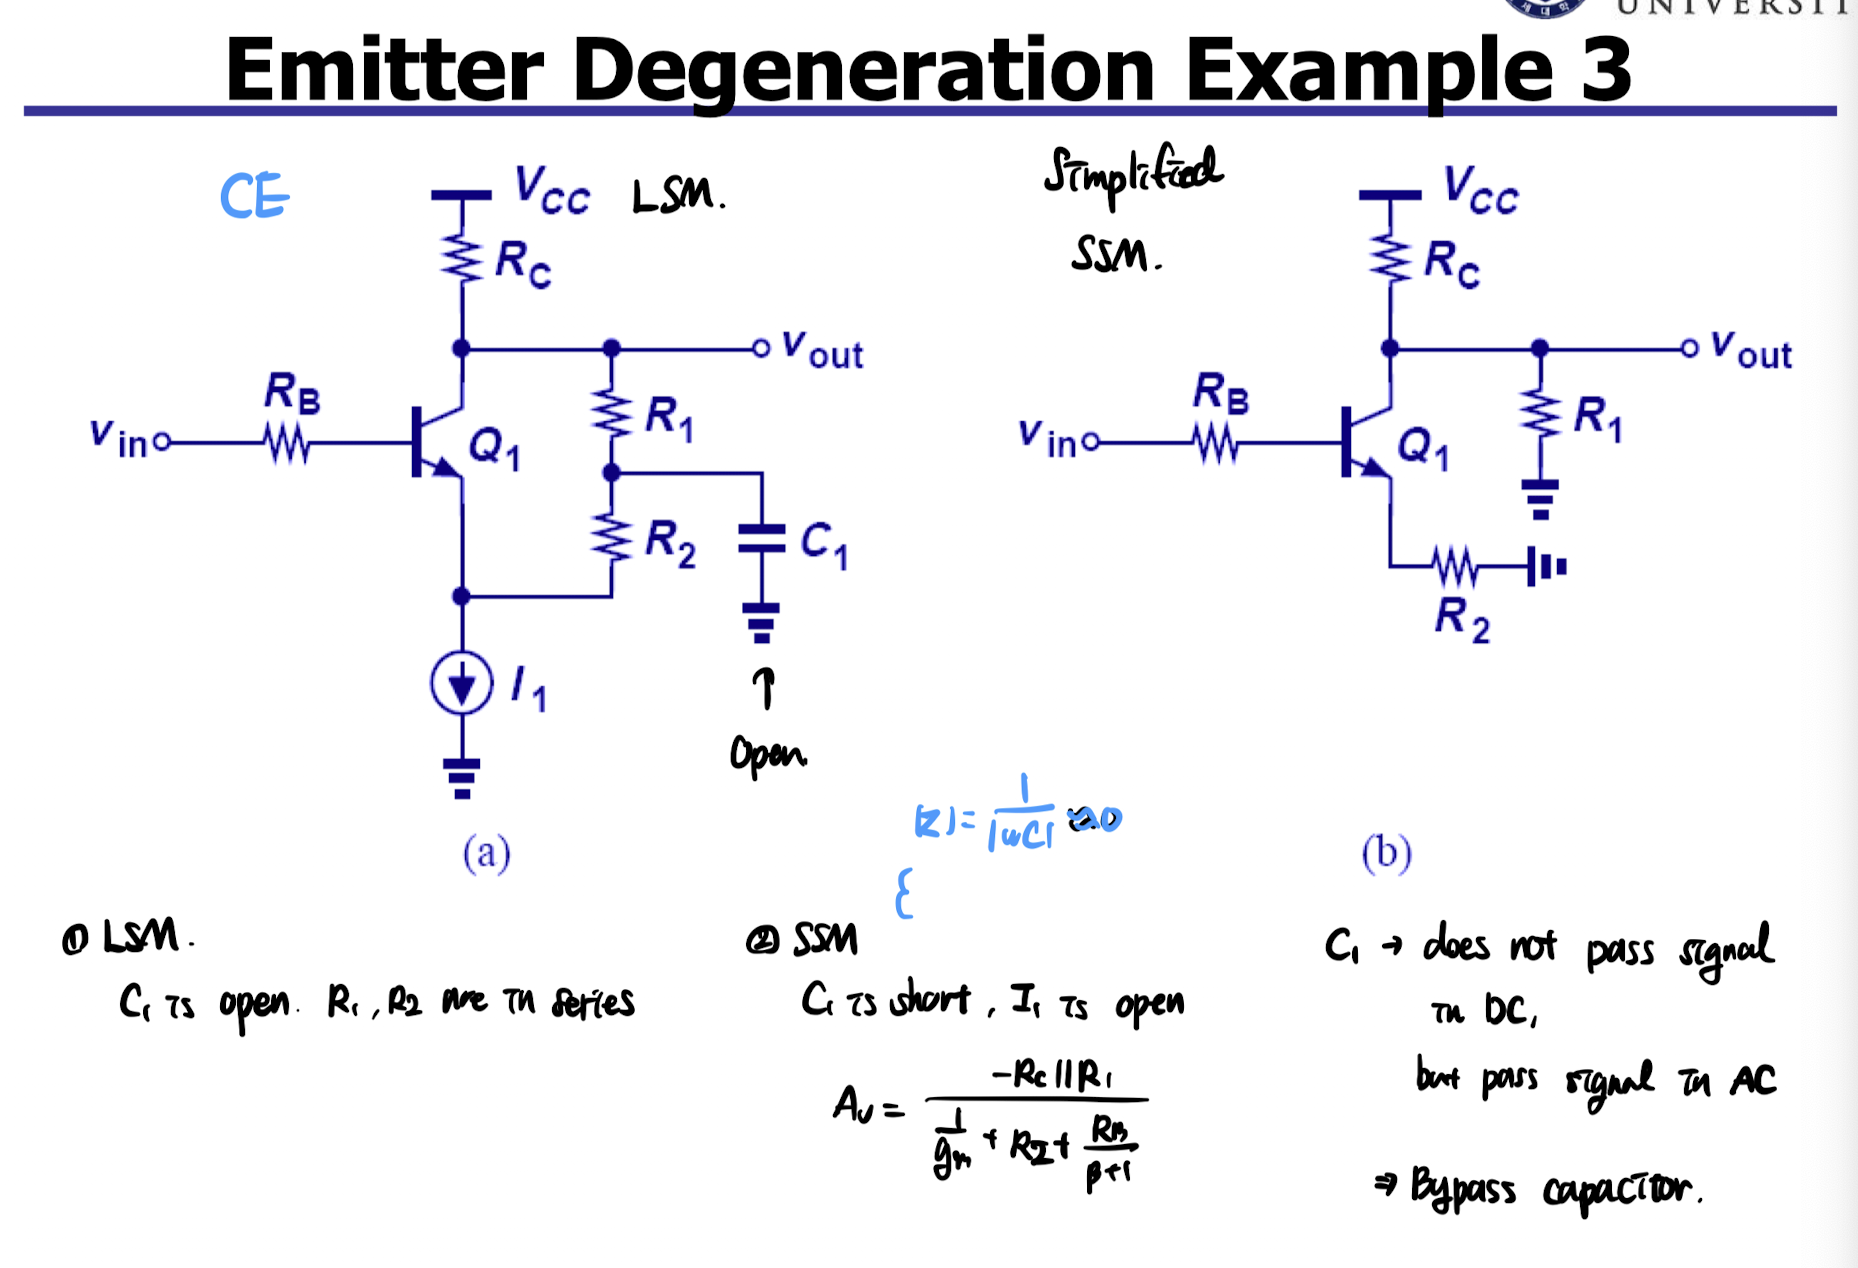 UNIVERSIT
Emitter Degeneration Example 3
CE
VCC LSM.
RC
vout
RB
vin
Q1
R1
R2
C1
I1
↑
Open.
(a)
Simplified
SSM.
VCC
RC
vout
RB
vin
Q1
R1
R2
(b)
|Z| = 1/|ωC1| ≈0
{
① LSM.
C1 is open. R1, R2 are in series
② SSM
C1 is short, I1 is open
Av = -RC||R1 / (1/gm + R2 + RB/(β+1))
C1 → does not pass signal
in DC,
but pass signal in AC
⇒ Bypass capacitor.